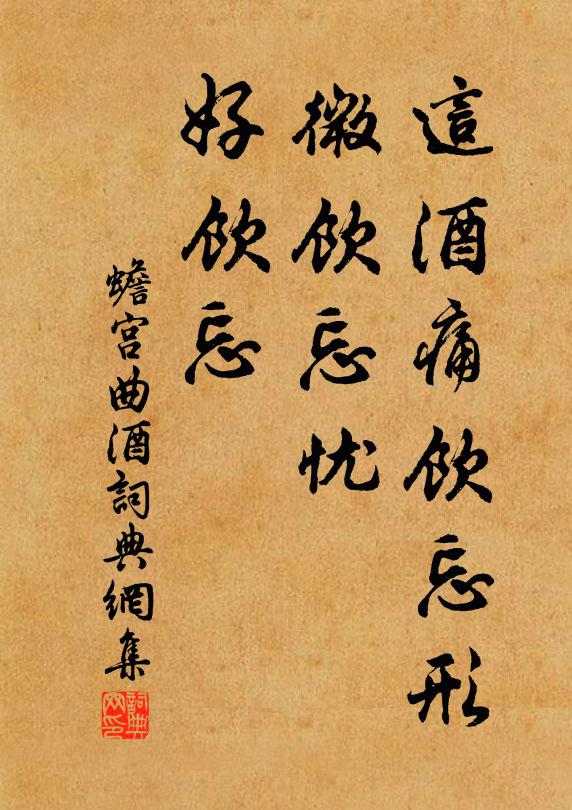 這酒痛飲忘形
微飲忘忧
好飲忘
蟾宮曲酒詞典網集
詞典
网印